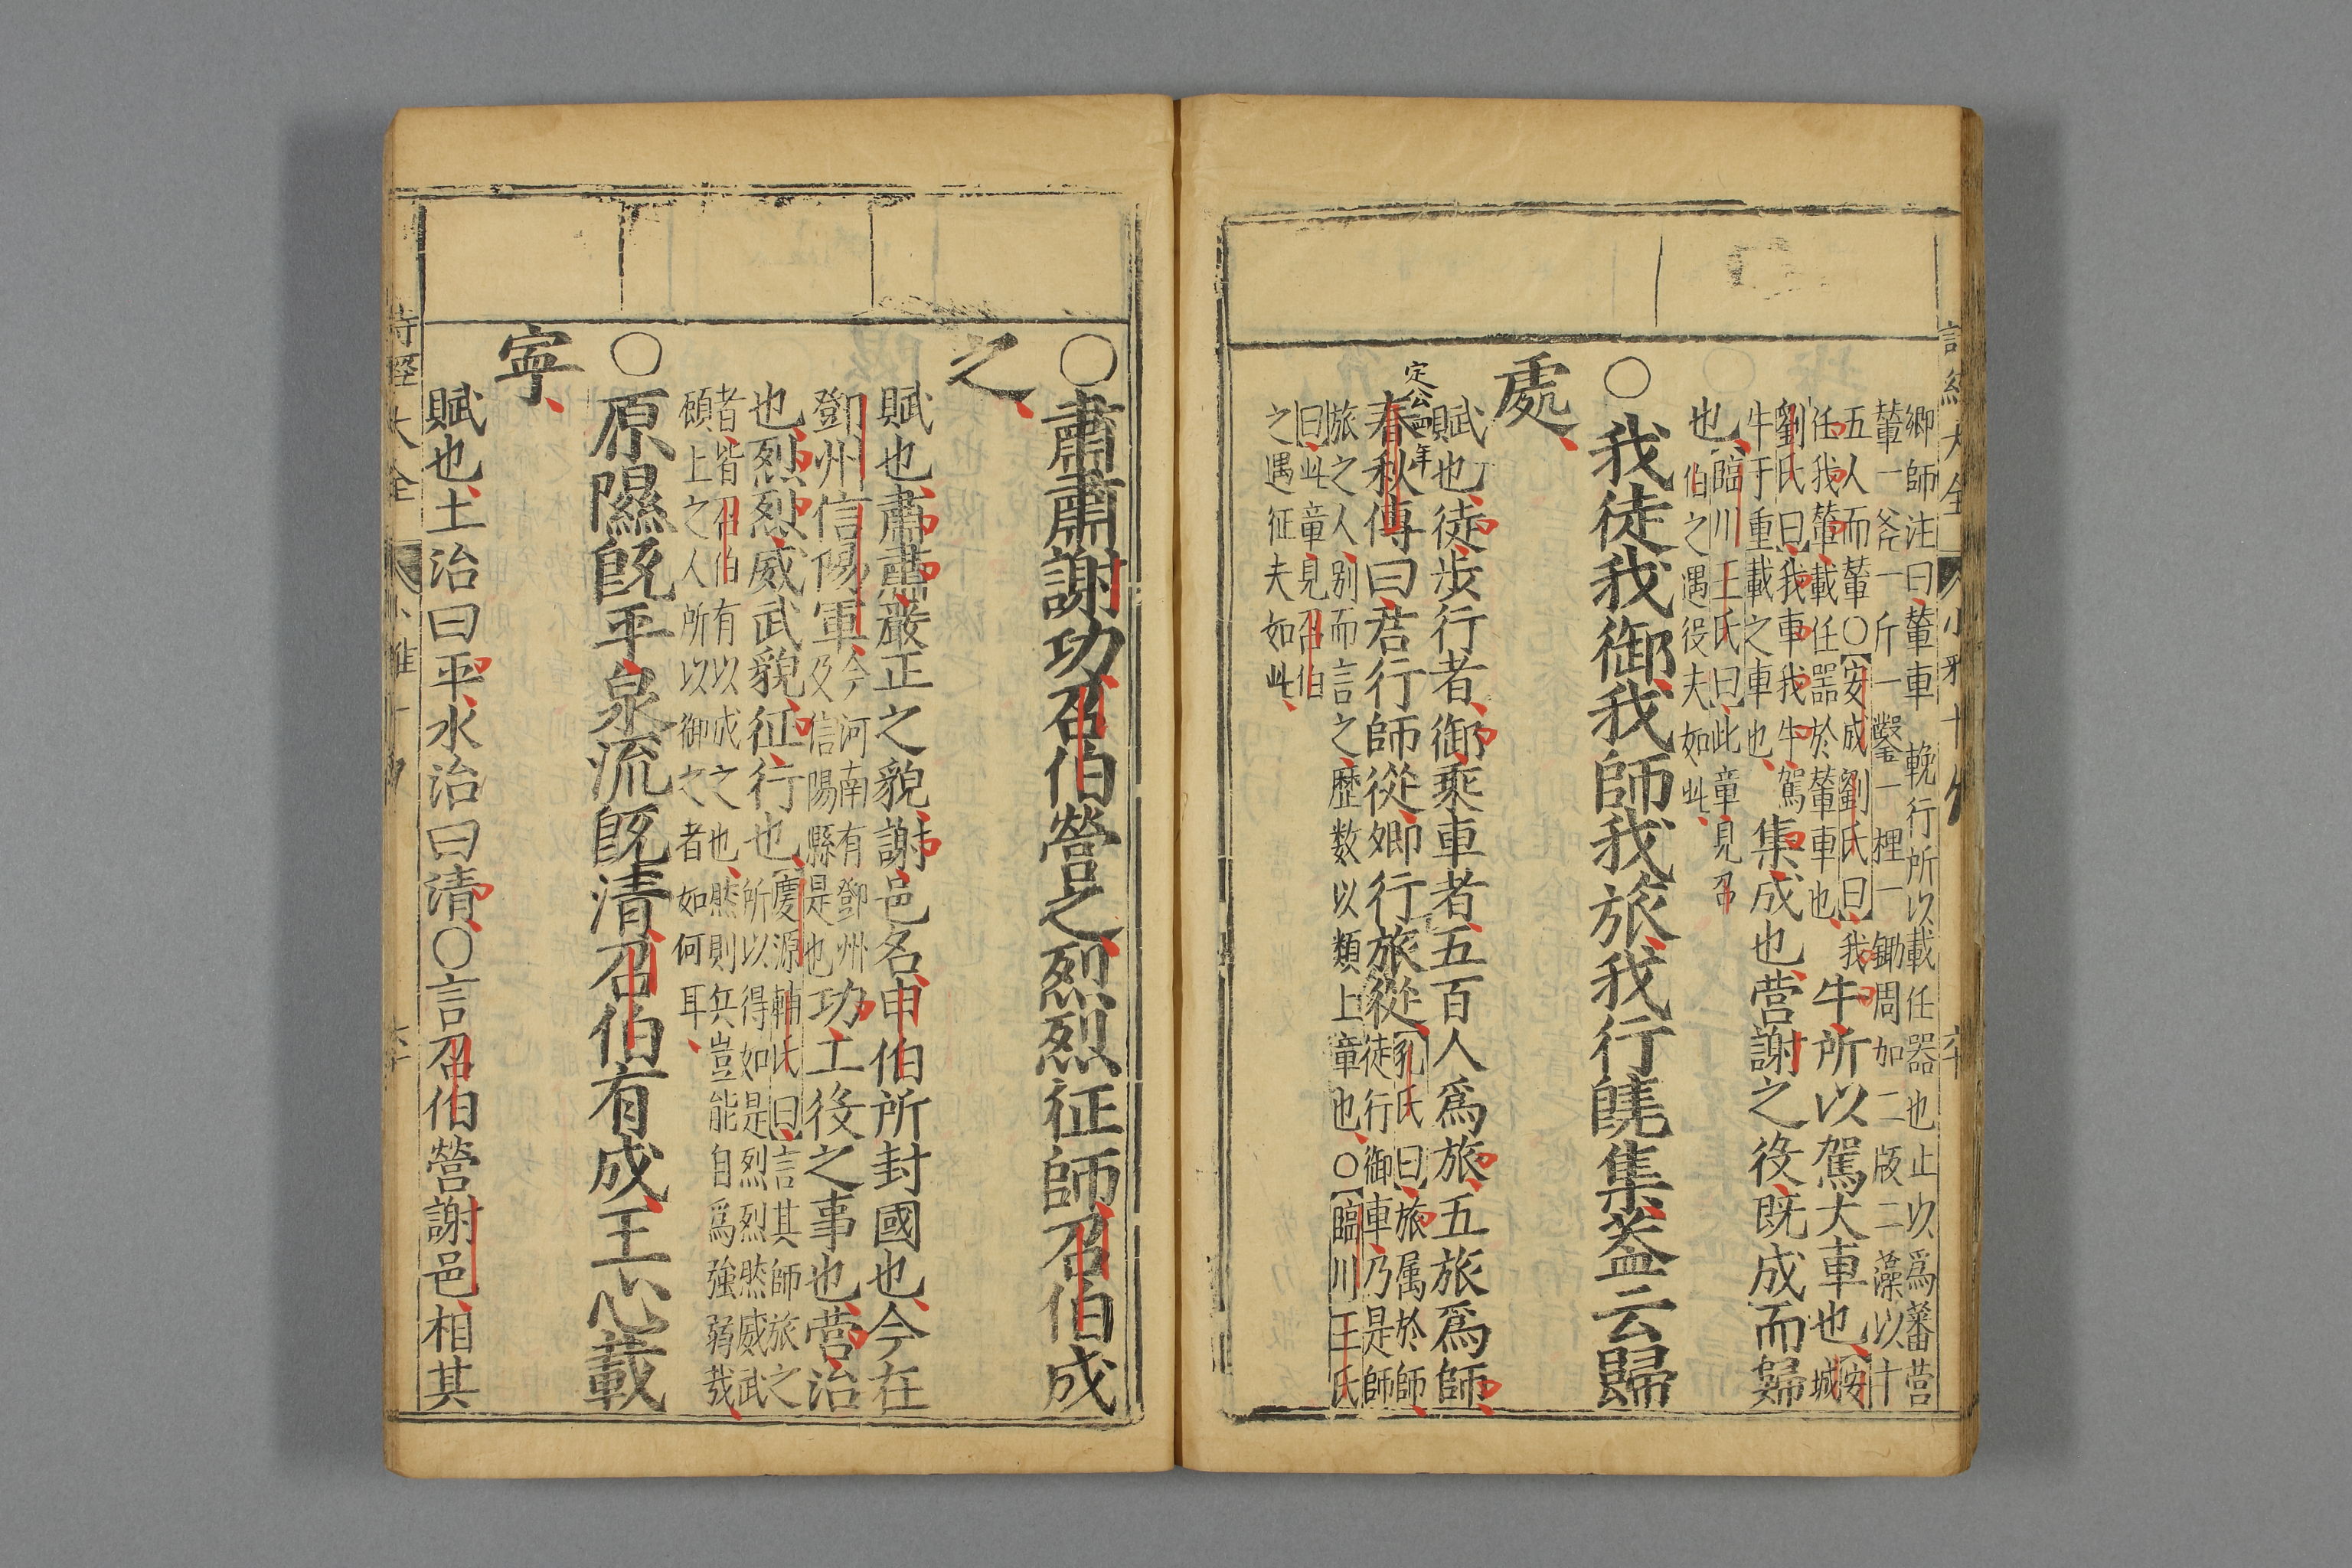 卿師注曰輂車輓行所以載任器也止以爲蕃営
輂一斧一斤一鑿一梩一鋤周加二版二藻以十
五人而輂〇安成劉氏曰我
任我輂載任器於輂車也
牛所以駕大車也
安城
劉氏曰我車我牛駕
牛于重載之車也
集成也营謝之役既成而歸
也
臨川王氏曰此章見召
伯之遇役夫如此
〇我徒我御我師我旅我行旣集蓋云歸
處
賦也徒歩行者御乘車者五百人爲旅五旅爲師
定公四年
春秋傳曰君行師從卿行旅從
孔氏曰旅属於師
徒行御車乃是師
旅之人别而言之歷数以類上章也〇臨川王氏
曰此章見召伯
之遇征夫如此
詩經大全
小雅十
〇肅肅謝功召伯營之烈烈征師召伯成
之
賦也肅肅嚴正之貌謝邑名申伯所封國也今在
鄧州信陽軍
今河南有鄧州
及信陽縣是也
功工役之事也营治
也烈烈威武貌征行也
慶源輔氏曰言其師旅之
所以得如是烈烈然威武
者皆召伯有以成之也然則兵豈能自爲強弱哉
顧上之人所以御之者如何耳
〇原隰旣平泉流旣清召伯有成王心載
寧
賦也土治曰平水治曰清〇言召伯營謝邑相其
詩經大全
小雅十